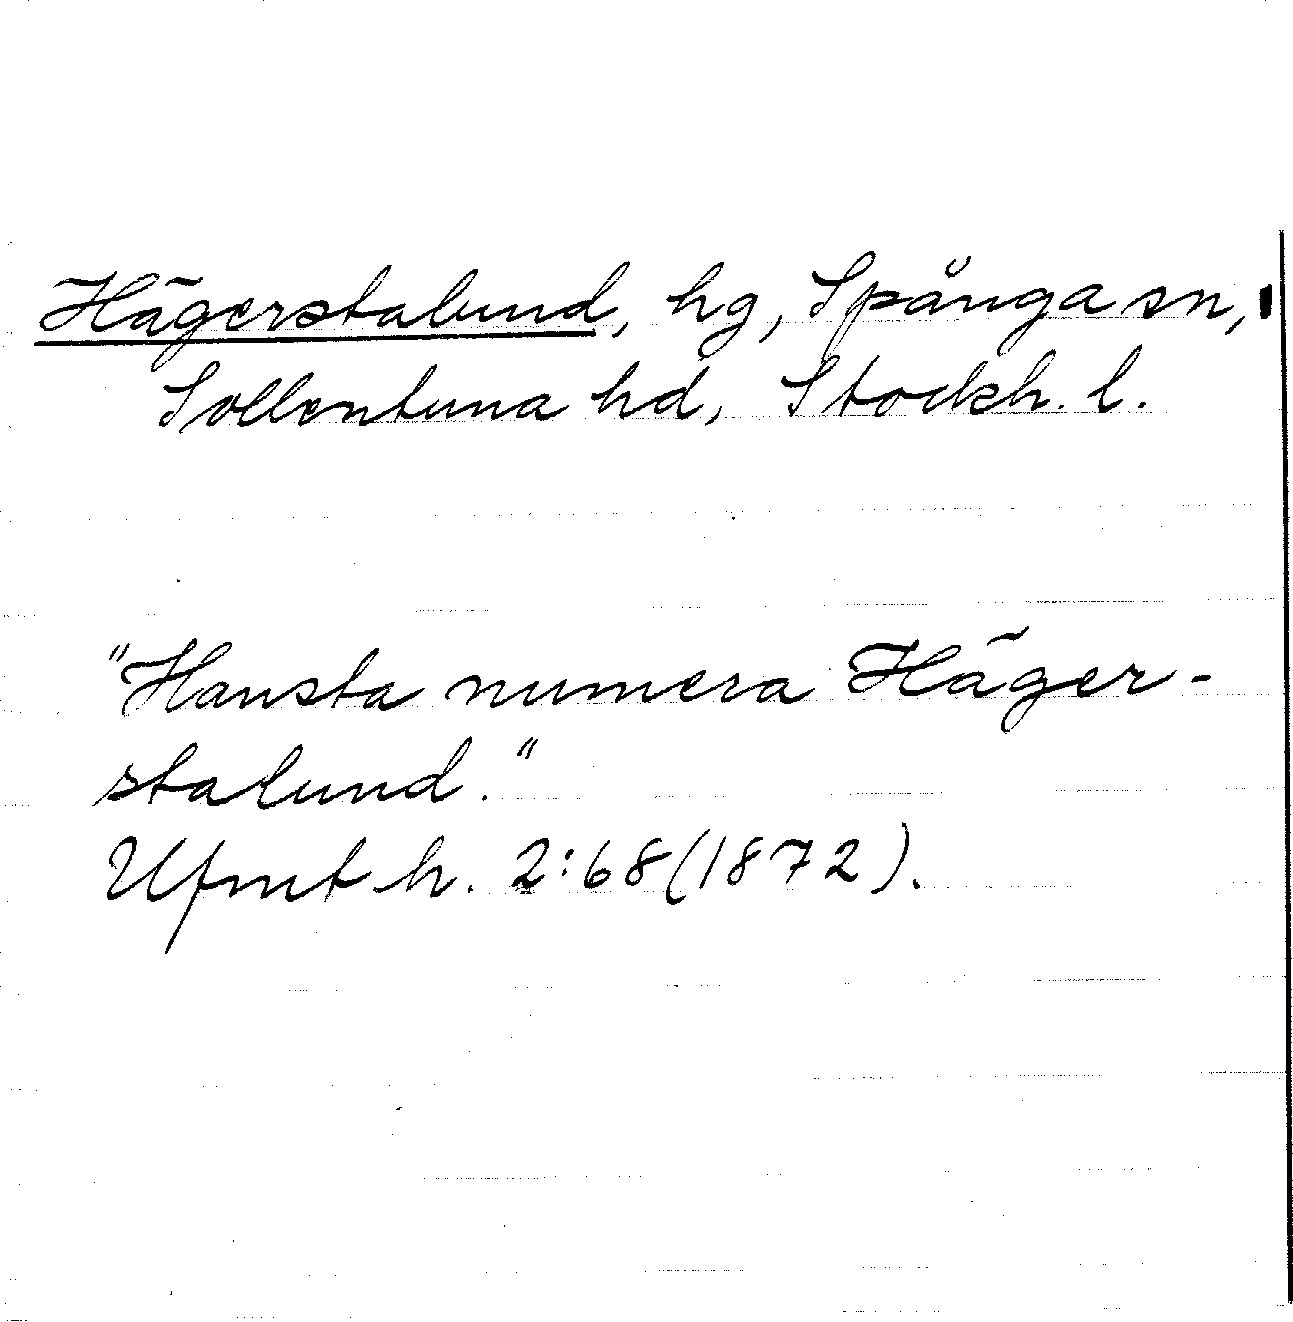 Hägerstalund, hg, Spånga sn,
Sollentuna hd, Stockh. l.
"Hansta numera Häger-
stalund."
Ufmt h. 2:68(1872).